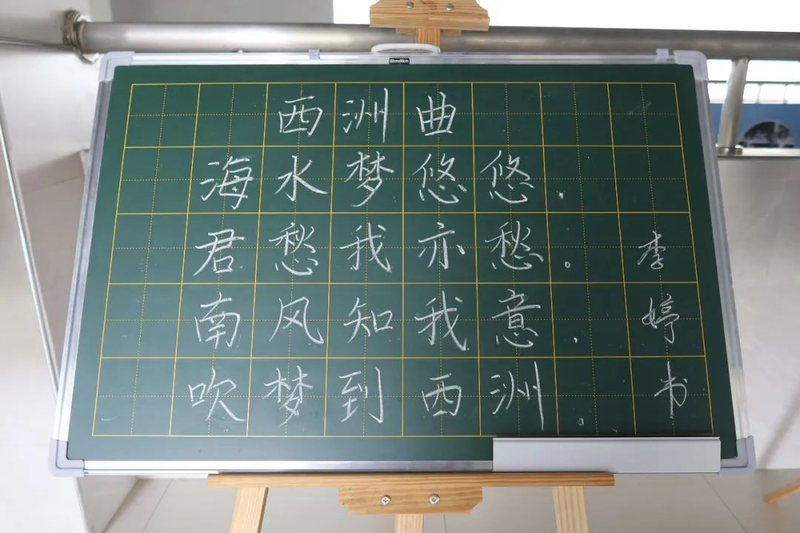 西洲曲
海水梦悠悠，
君愁我亦愁。
南风知我意，
吹梦到西洲。
李婷书